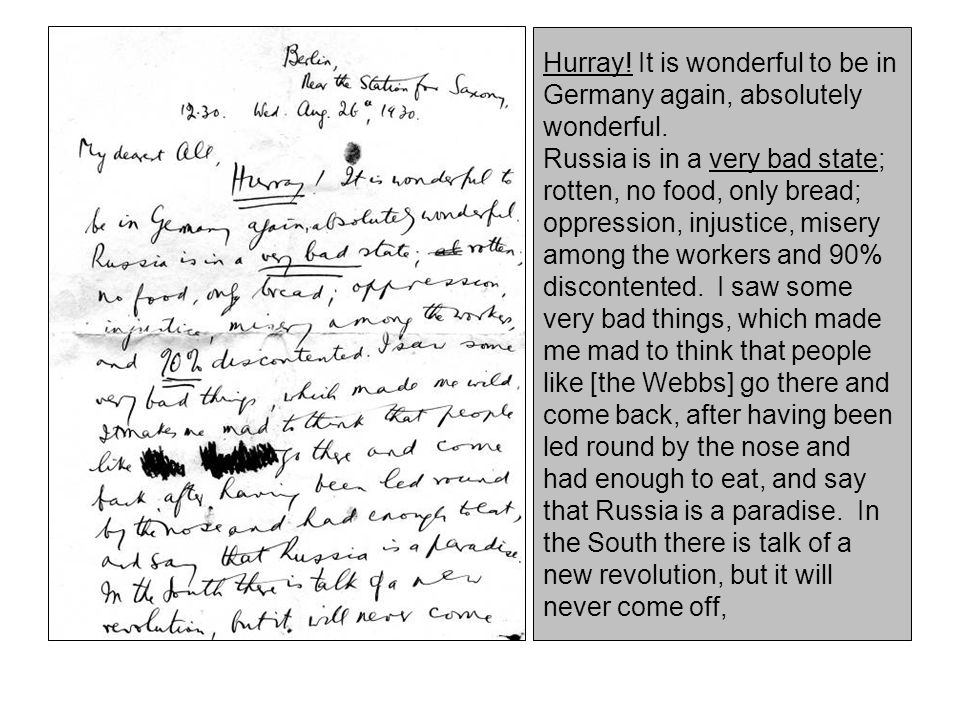 Berlin,
Near the Station for Saxony,
12.30. Wed. Aug. 26th, 1930.
My dearest All,
Hurray! It is wonderful to
be in Germany again, absolutely wonderful.
Russia is in a very bad state; rotten;
no food, only bread; oppression,
injustice, misery among the workers,
and 90% discontented. I saw some
very bad things, which made me wild.
It makes me mad to think that people
like go there and come
back, after, having been led round
by the nose and had enough to eat,
and say that Russia is a paradise.
In the South there is talk of a new
revolution, but it will never come
Hurray! It is wonderful to be in
Germany again, absolutely
wonderful.
Russia is in a very bad state;
rotten, no food, only bread;
oppression, injustice, misery
among the workers and 90%
discontented.  I saw some
very bad things, which made
me mad to think that people
like [the Webbs] go there and
come back, after having been
led round by the nose and
had enough to eat, and say
that Russia is a paradise.  In
the South there is talk of a
new revolution, but it will
never come off,